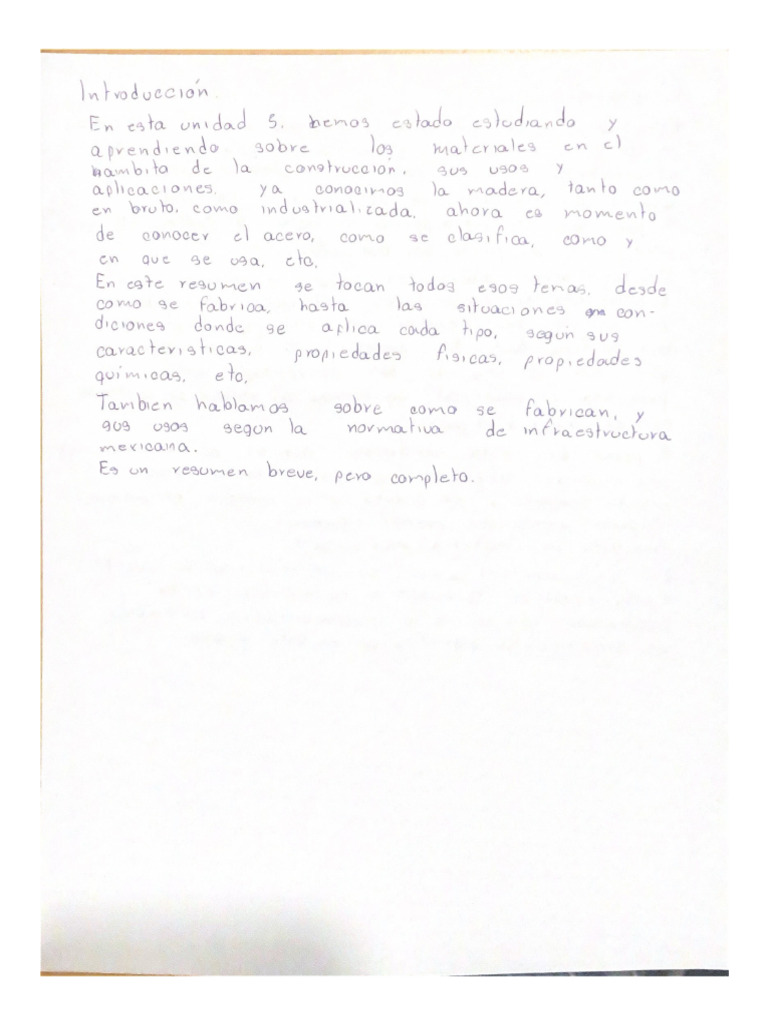 Introducción.
En esta unidad 5. hemos estado estudiando y
aprendiendo sobre los materiales en el
hambito de la construcción, sus usos y
aplicaciones, ya conocimos la madera, tanto como
en bruto, como industrializada, ahora es momento
de conocer el acero, como se clasifica, como y
en que se usa, etc.
En este resumen se tocan todos esos temas, desde
como se fabrica, hasta las situaciones con-
diciones donde se aplica cada tipo, según sus
caracteristicas, propiedades fisicas, propiedades
químicas, etc.
Tambien hablamos sobre como se fabrican, y
sus usos segun la normativa de infraestructura
mexicana.
Es un resumen breve, pero completo.